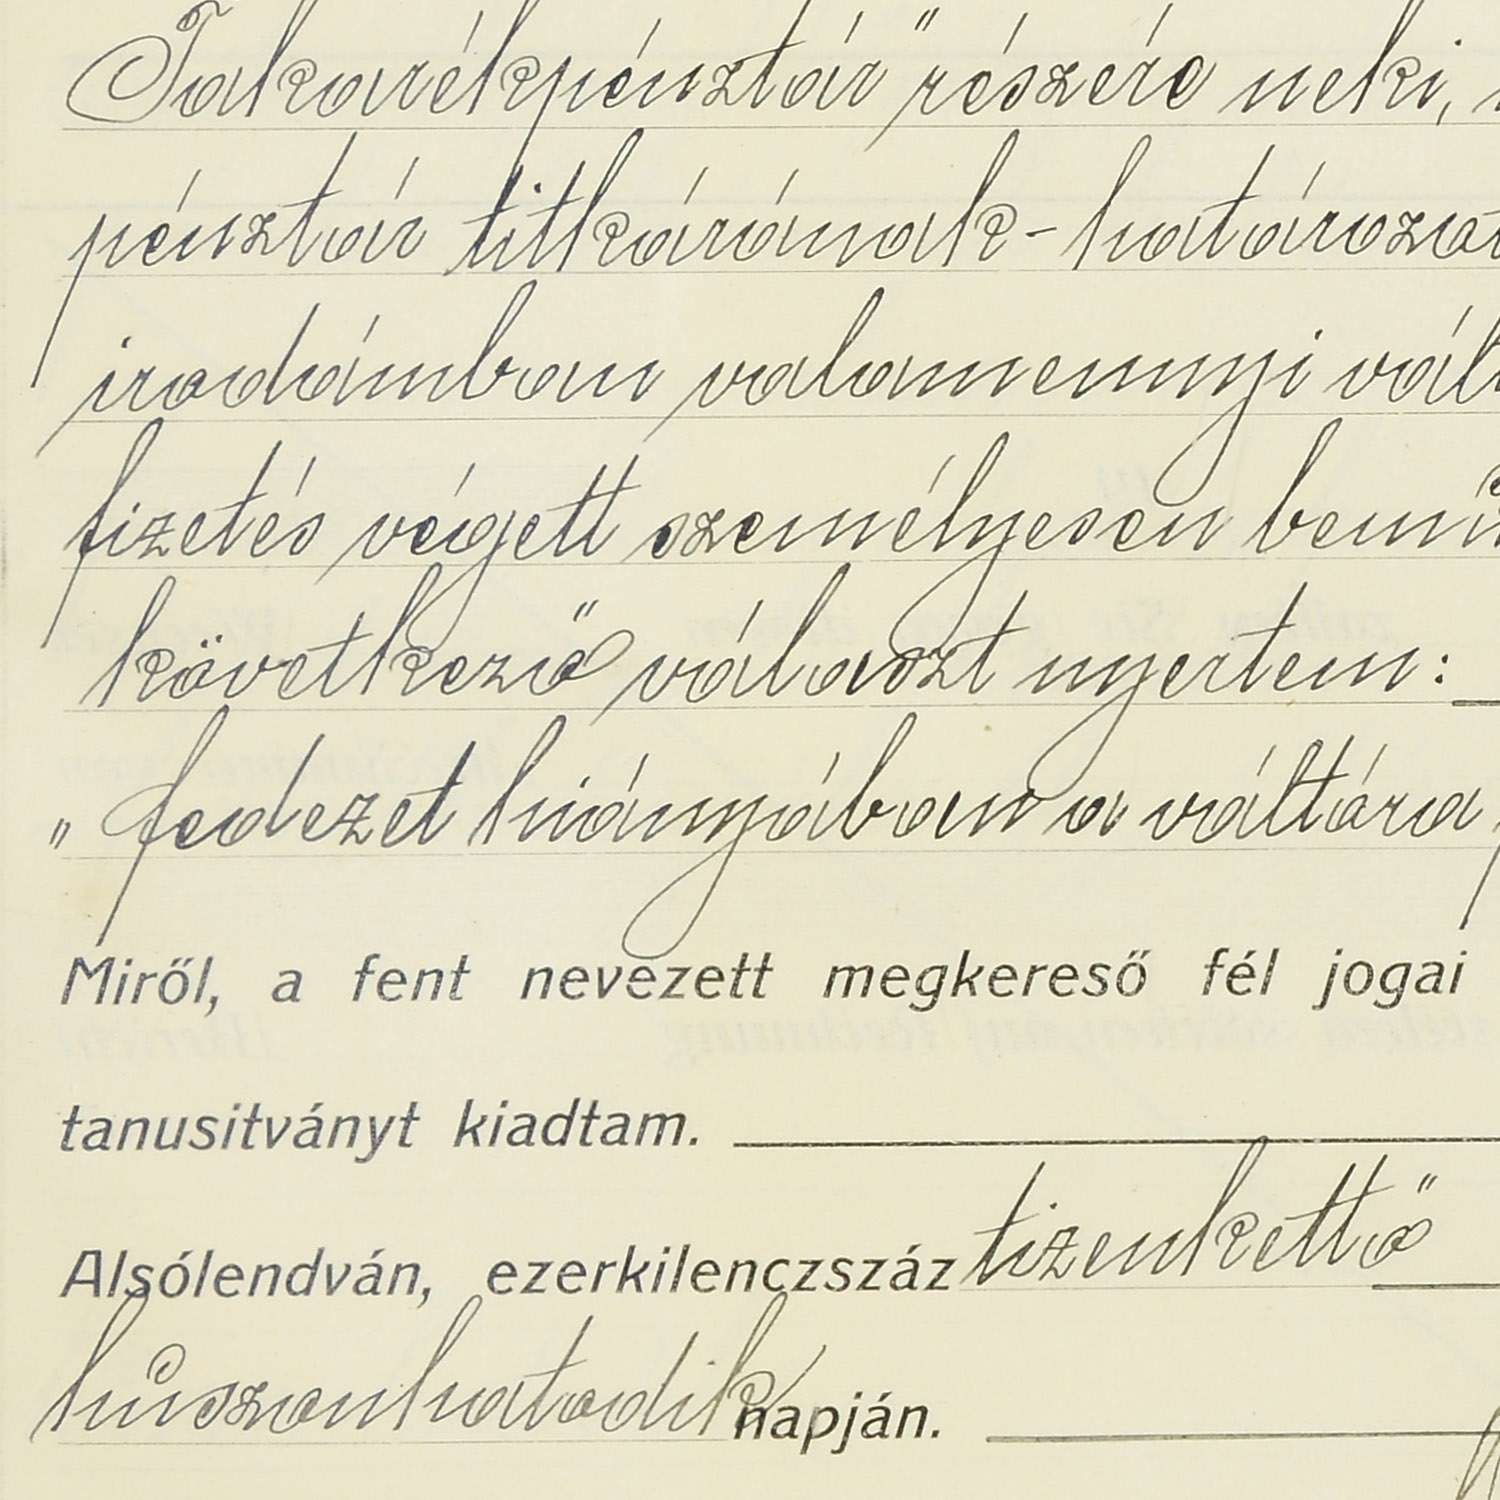 Takarékpénztár" részére neki,
pénztár titkárának - határozat
irodámban valamennyi vált
fizetés végett személyesen bemu
következő választ nyertem:
„fedezet hiányában a váltóra
Miről, a fent nevezett megkereső fél jogai
tanusitványt kiadtam.
Alsólendván, ezerkilenczszáz tizenkettő
húszonhatodik napján.